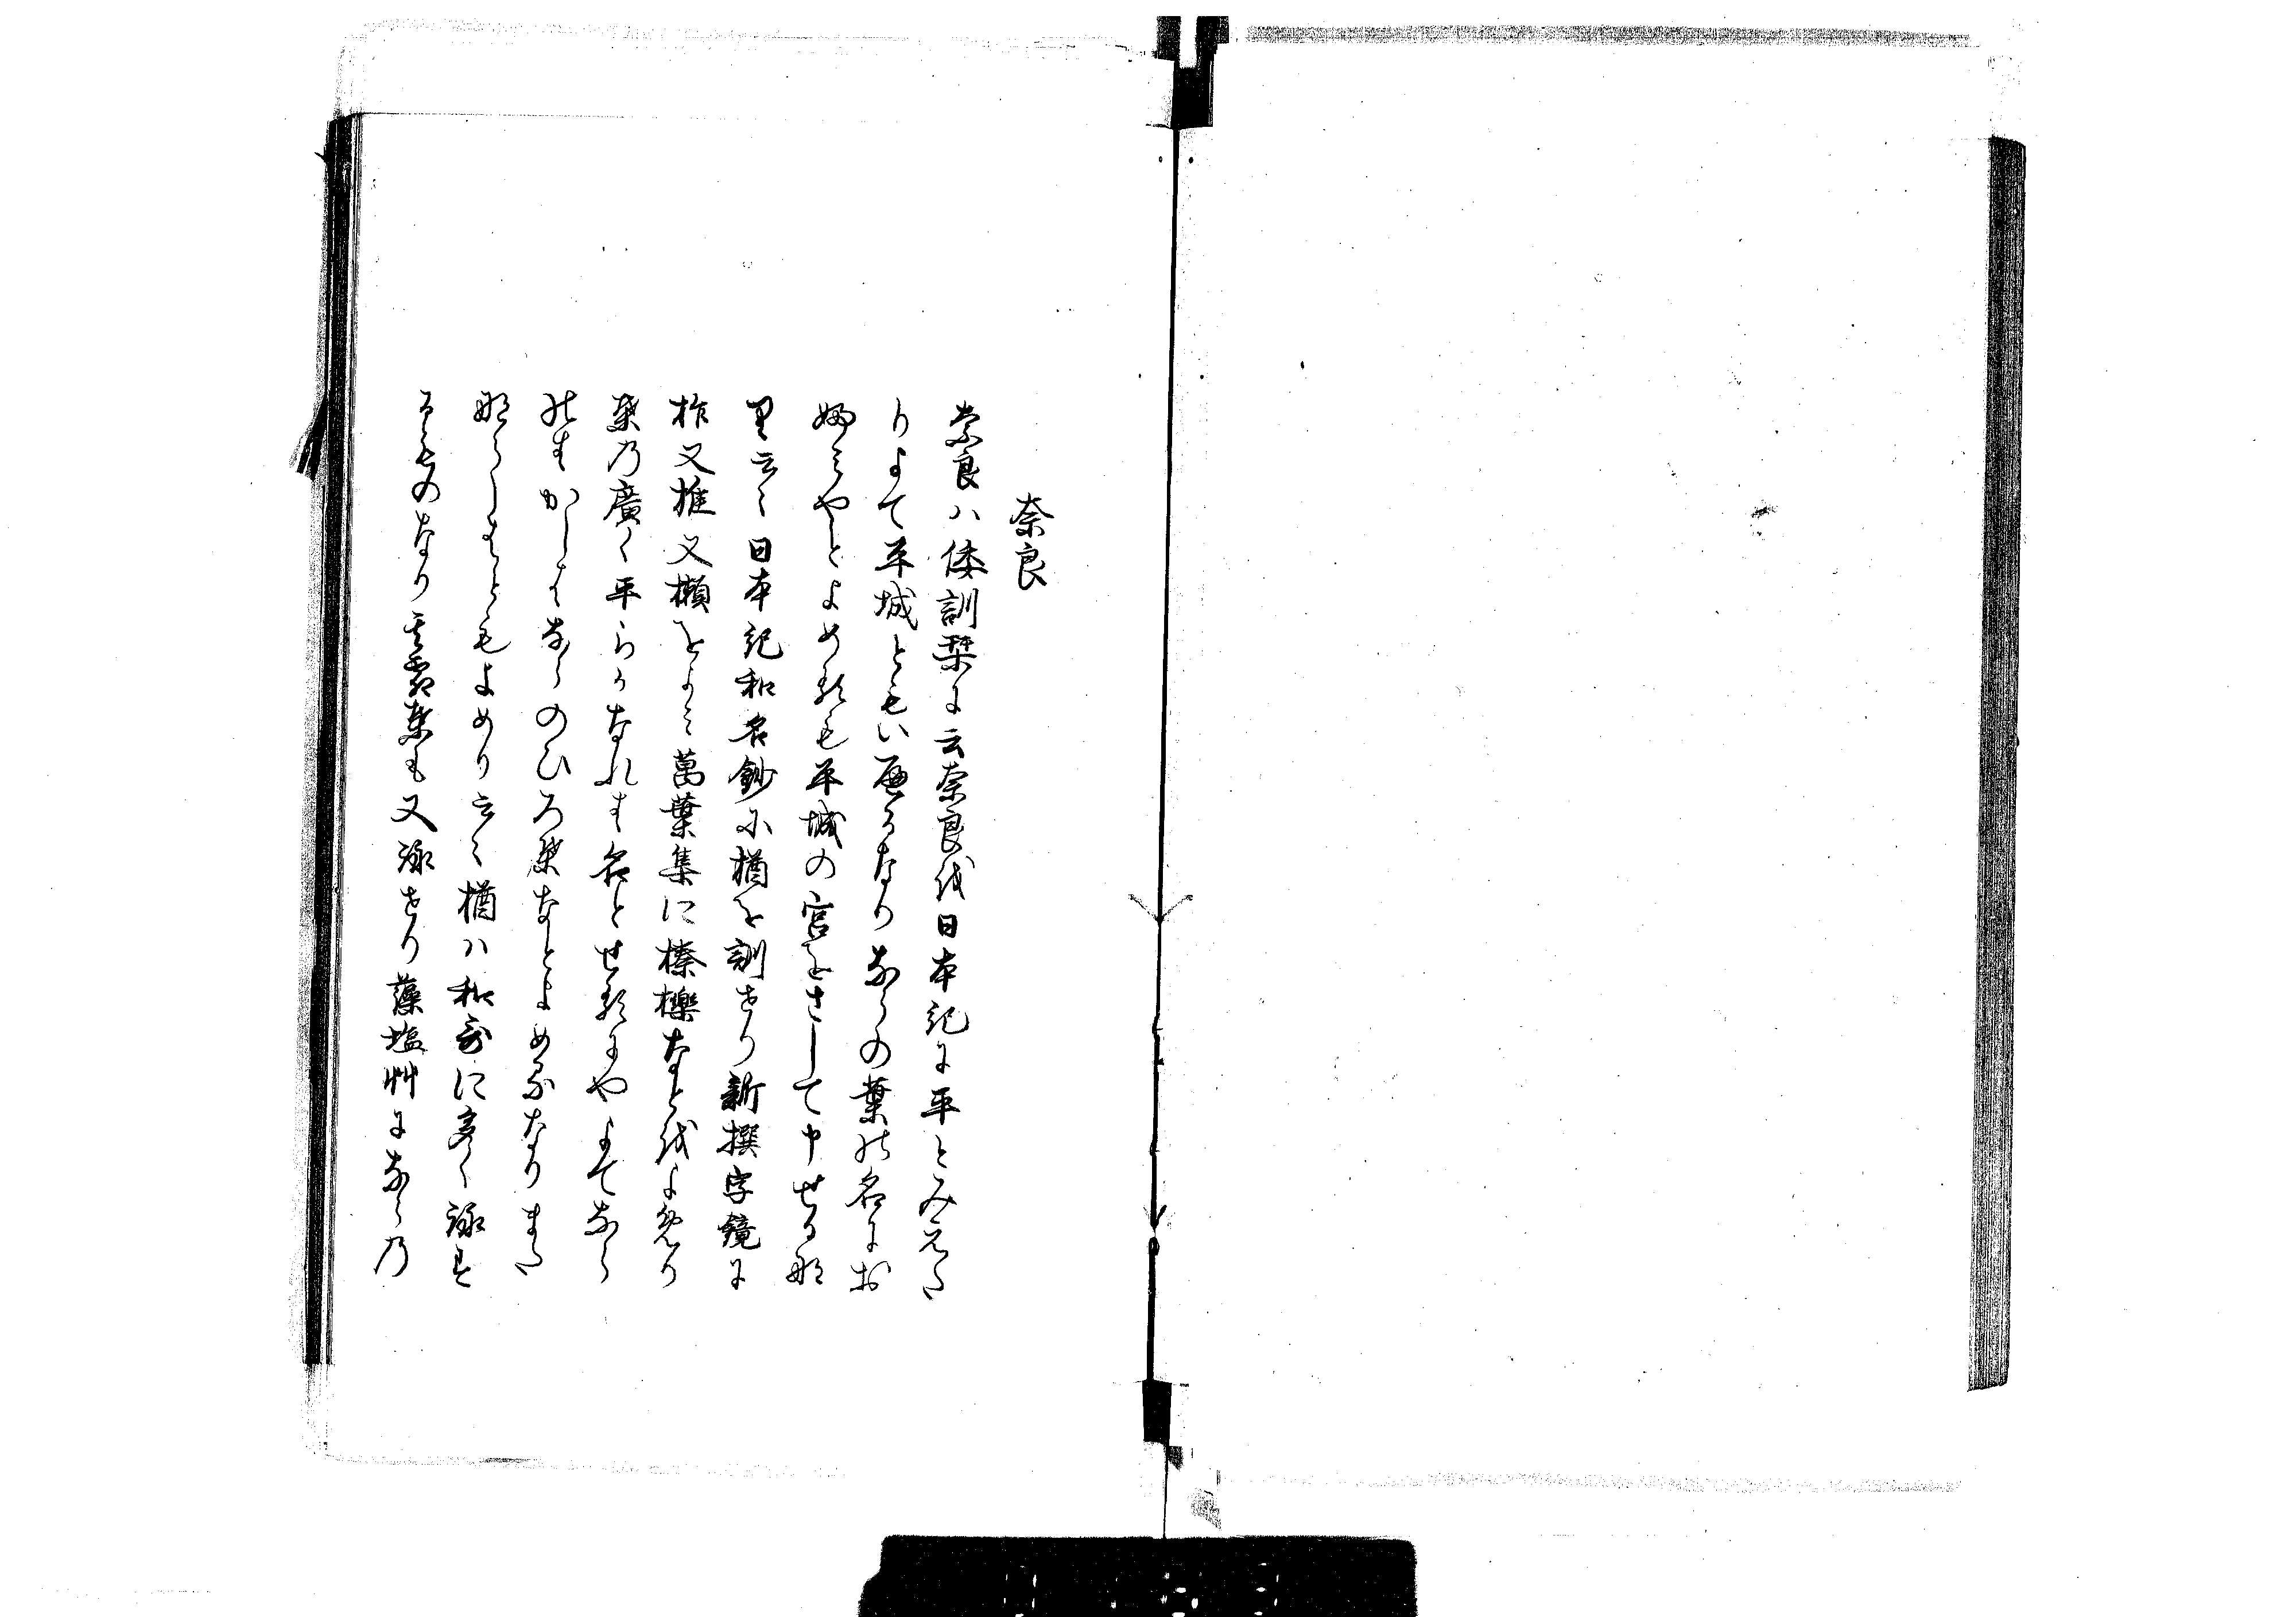 奈良
奈良ハ倭訓栞に云奈良を日本記に平とみえた
りよて平城ともいへるなりならの葉の名にお
ふみやとよめるも平城の宮をさして申せるな
里云々日本記和名鈔に楢を訓せり新撰字鏡に
柞又椎又櫇をよミ萬葉集に榛櫟なとをよめり
葉乃廣く平らかなれは名とせるにやよてなら
のはかしはならのひろ葉なとよめるなりまた
ならしはともよめり云々楢ハ和哥に多く詠す
るものなり其霜葉も又詠せり藻塩艸になら乃